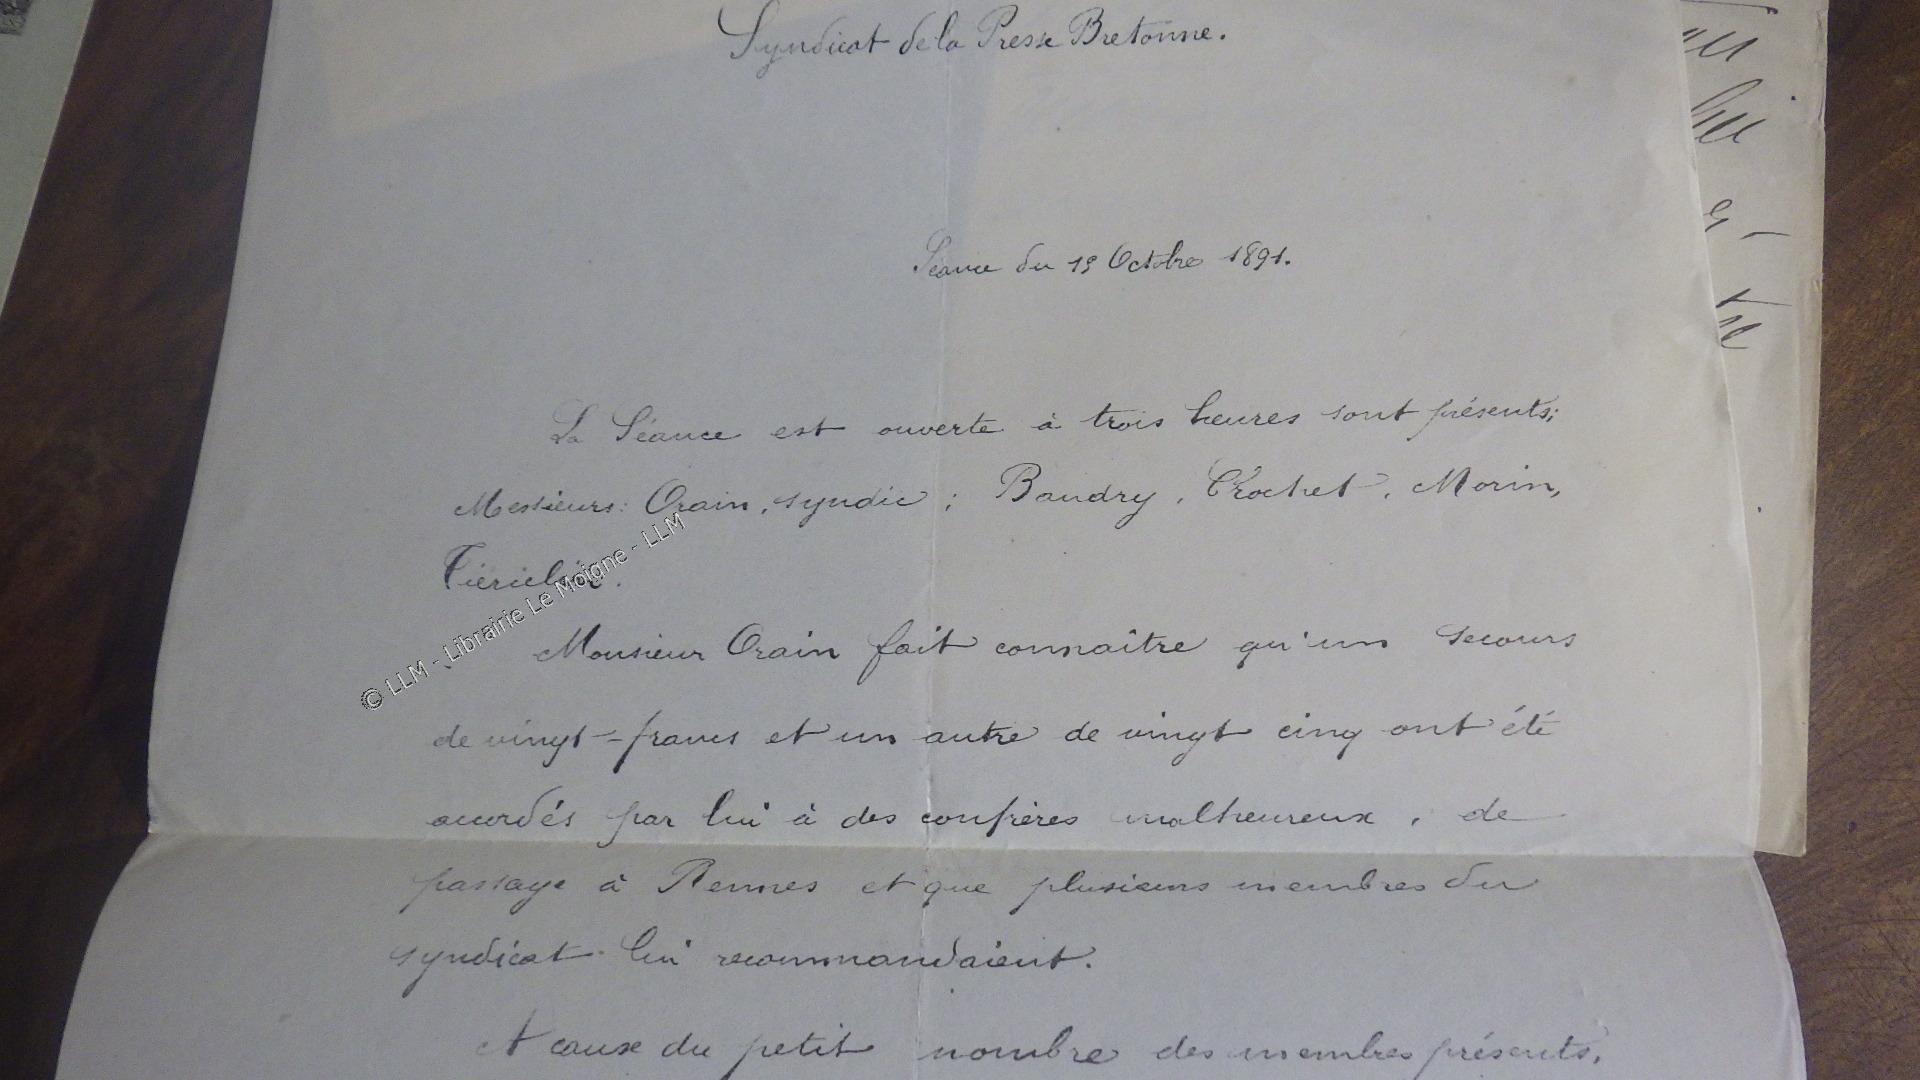 Syndicat de la Presse Bretonne.
Séance du 19 Octobre 1891.
La Séance est ouverte à trois heures sont présents;
Messieurs: Orain, syndic; Baudry, Crochet, Morin,
Monsieur Orain fait connaître qu'un secours
de vingt-francs et un autre de vingt cinq ont été
accordés par lui à des confrères malheureux, de
passage à Rennes et que plusieurs membres du
syndicat lui recommandaient.
A cause du petit nombre des membres présents,
© LLM - Librairie Le Moigne - LLM